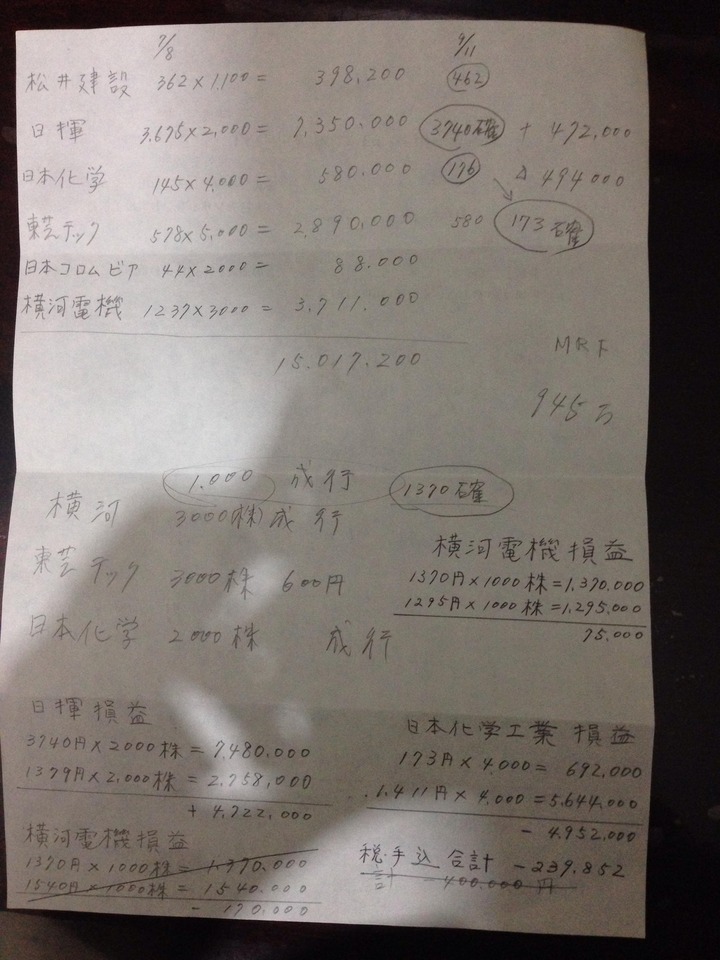 7/8 9/11
松井建設 362×1.100= 398,200 462
日揮 3,675×2,000= 7,350.000 3740確 + 472,000
日本化学 145×4,000= 580.000 176 △ 494000
東芝テック 578×5,000= 2,890,000 580 173確
日本コロムビア 44×2000= 88.000
横河電機 1237×3000= 3,711.000
15.017.200
MRF
945万
1.000 成行 1370確
横河 3000(株)成行
東芝テック 3000株 600円
日本化学 2000株 成行
横河電機損益
1370円×1000株=1,370,000
1295円×1000株=1,295,000
75,000
日揮損益
3740円×2000株=7,480,000
1379円×2,000株=2,758,000
+ 4,722,000
横河電機損益
1370円×1000株=1,370,000
1540円×1000株=1540.000
- 170,000
日本化学工業 損益
173円×4,000= 692,000
1,411円×4,000=5,644,000
- 4,952,000
税・手込 合計 -239,852
計 -400,000円